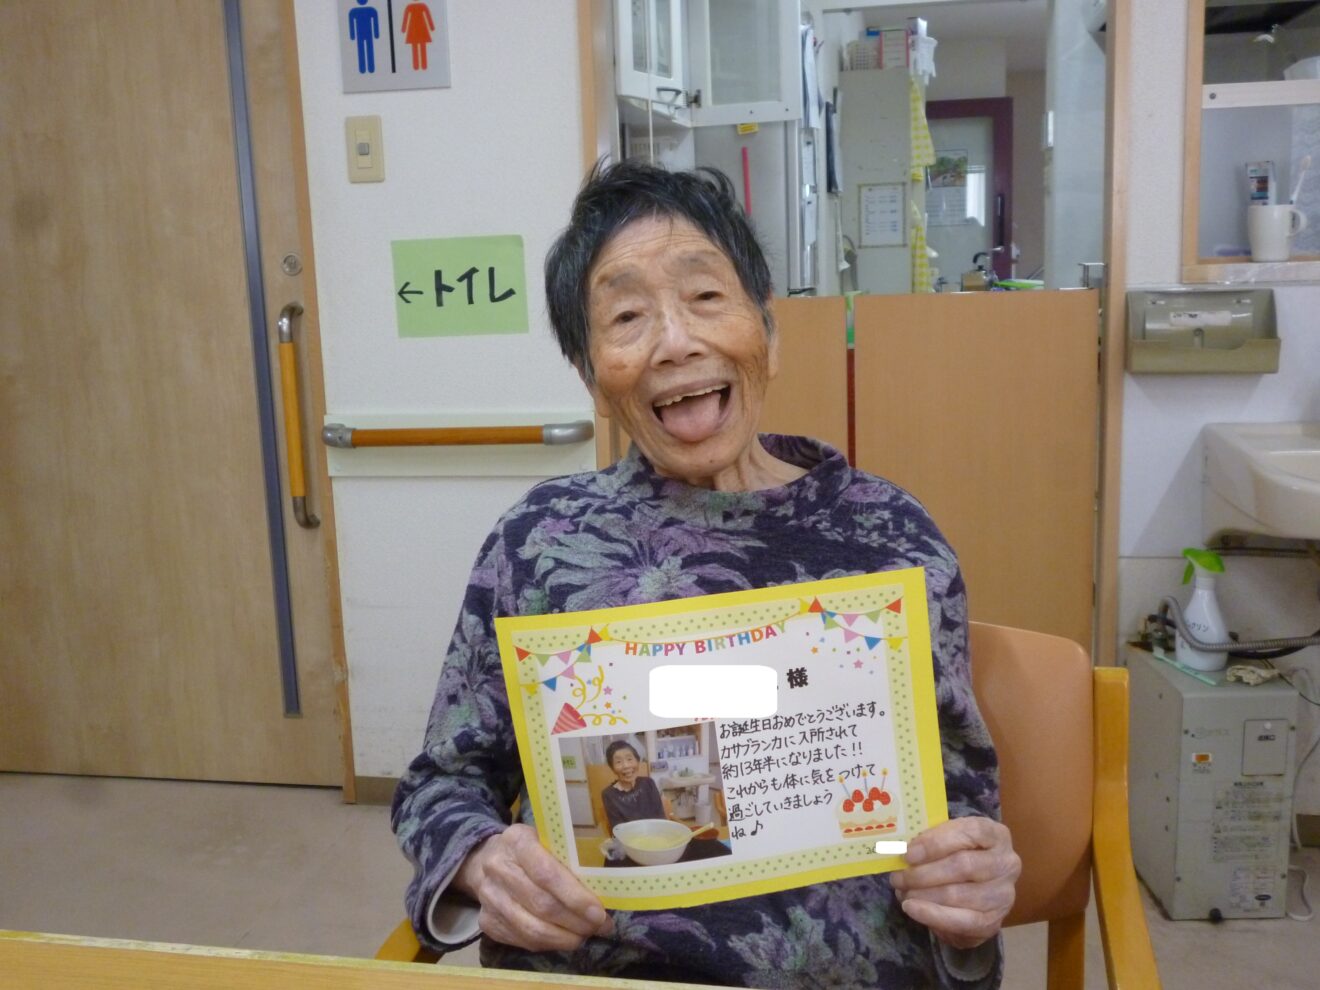 ←トイレ
HAPPY BIRTHDAY
様
お誕生日おめでとうございます。
カサブランカに入所されて
約13年半になりました!!
これからも体に気をつけて
過ごしていきましょう
ね♪